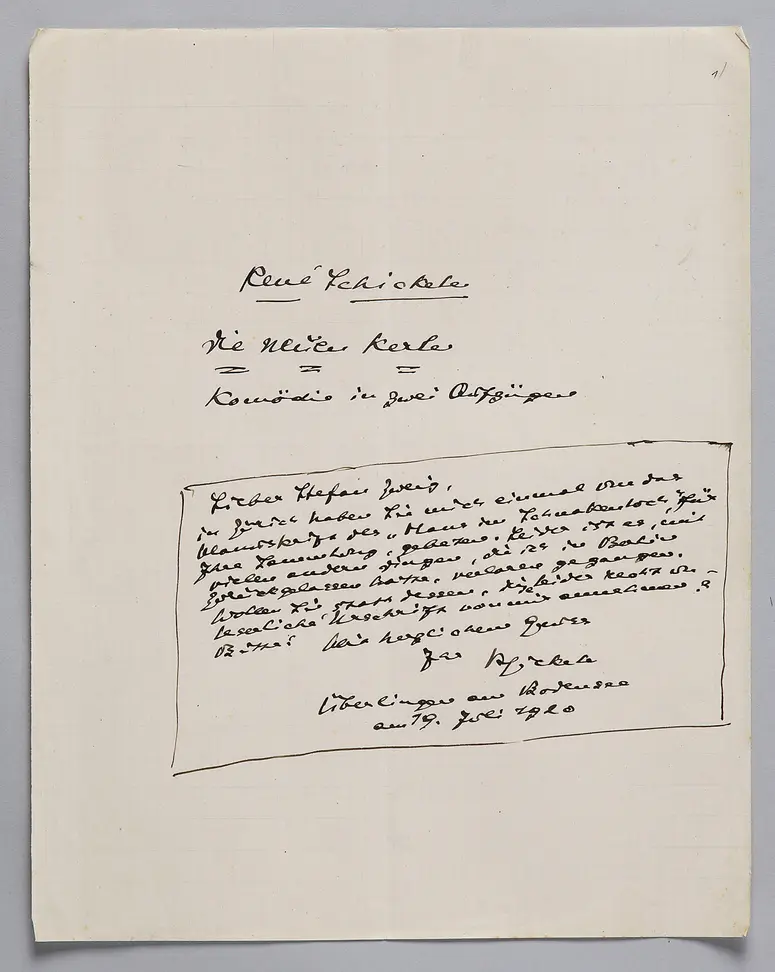 1)
René Schickele
Die neuen Kerle
Komödie in zwei Aufzügen
Lieber Stefan Zweig,
in Zürich haben Sie mich einmal um das
Manuskript des „Hans im Schnakenloch" für
Ihre Sammlung gebeten. Leider ist es, mit
vielen andern Dingen, die ich in Berlin
zurückgelassen hatte, verloren gegangen.
Wollen Sie, statt dessen, die leider recht un-
leserliche Urschrift von mir annehmen?
Bitte! Mit herzlichem Gruss
Ihr Schickele
Überlingen am Bodensee
am 19. Juli 1920